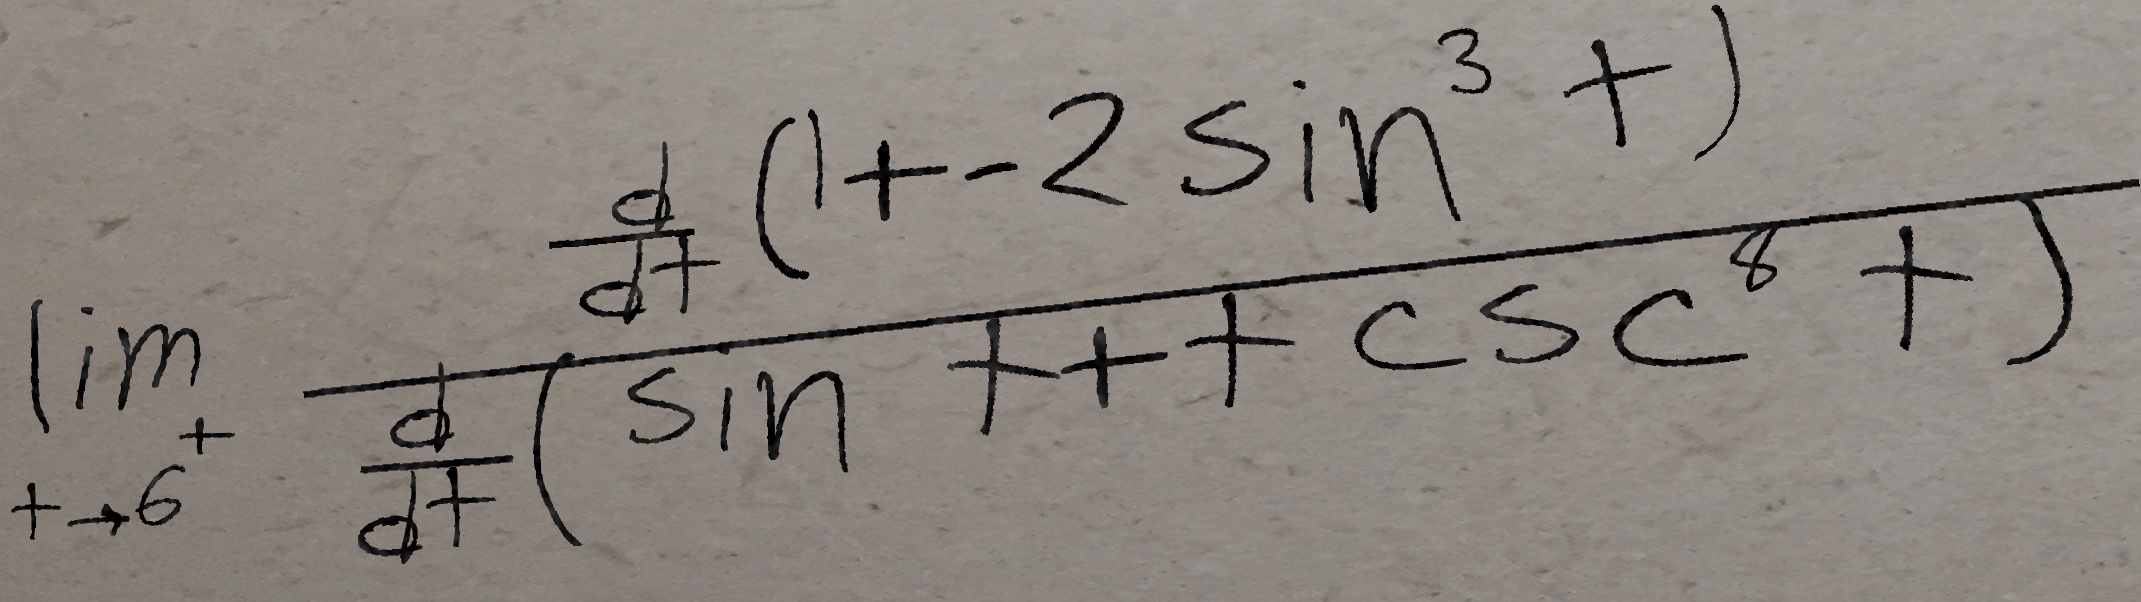 \lim_{t \to 6^+} \frac{\frac{d}{dt}(1+-2\sin^3 t)}{\frac{d}{dt}(\sin t+t\csc^8 t)}